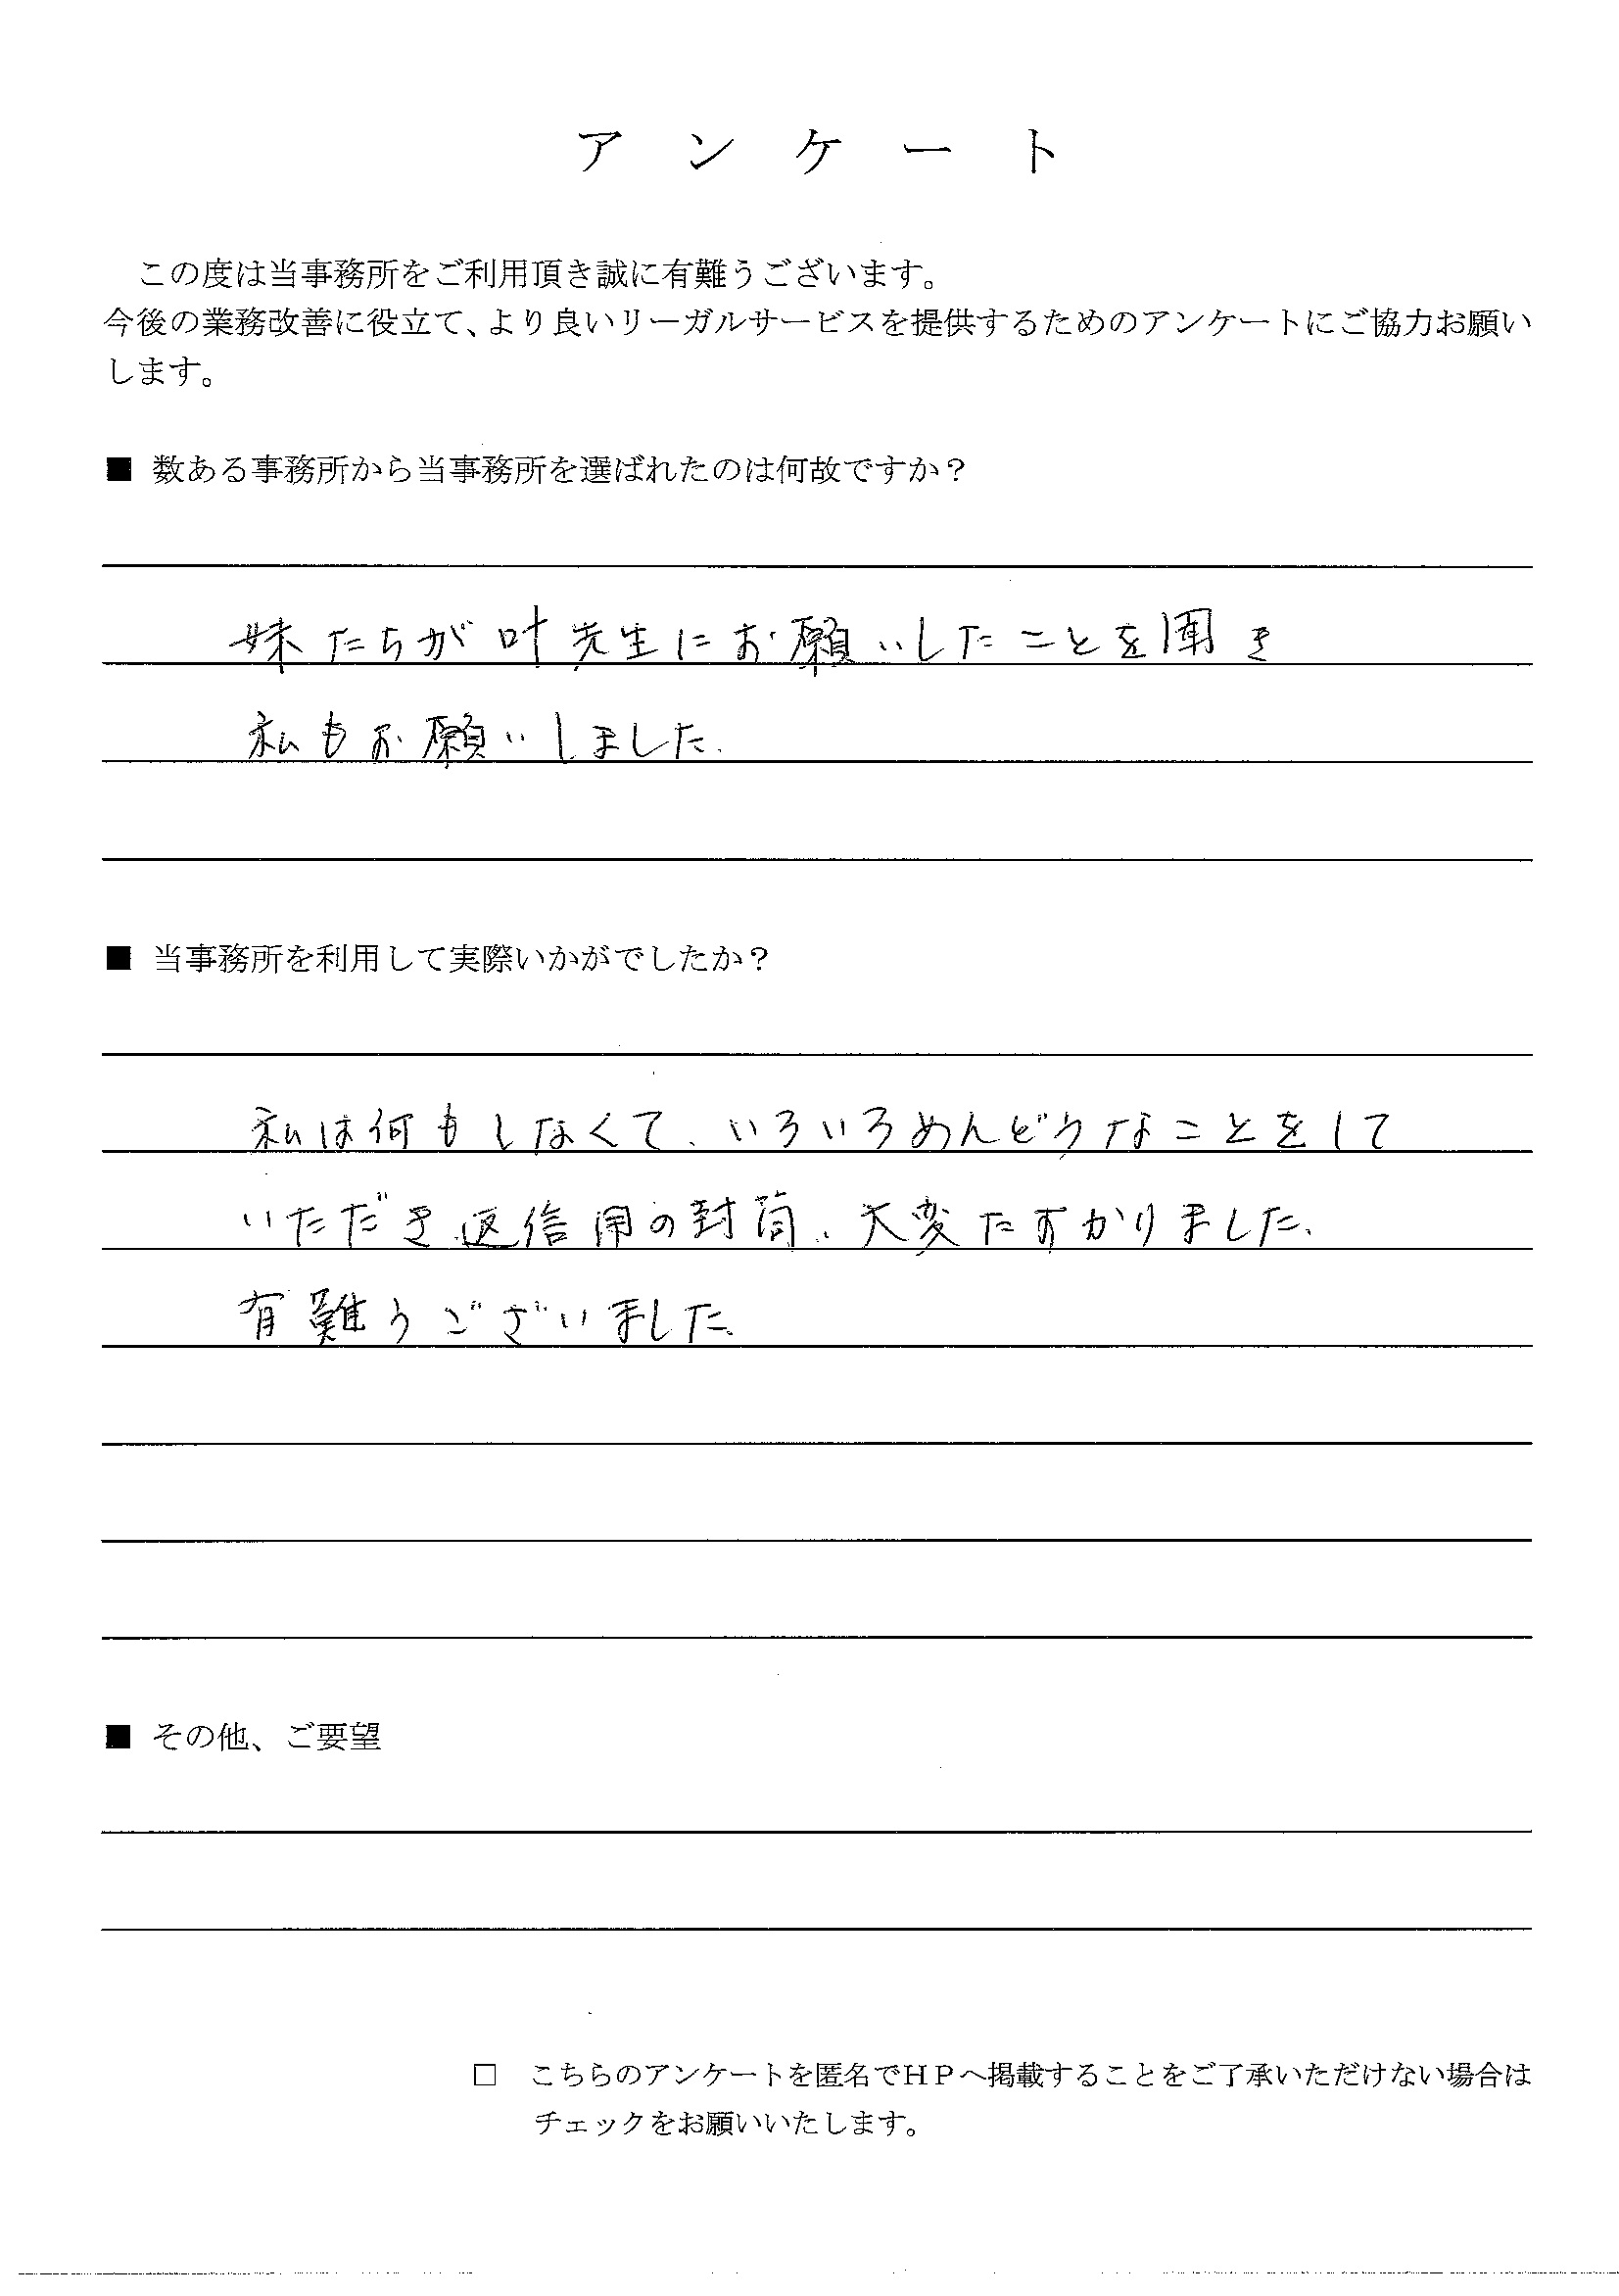 アンケート
この度は当事務所をご利用頂き誠に有難うございます。
今後の業務改善に役立て、より良いリーガルサービスを提供するためのアンケートにご協力お願い
します。
■ 数ある事務所から当事務所を選ばれたのは何故ですか？
妹たちが叶先生にお願いしたことを聞き
私もお願いしました.
■ 当事務所を利用して実際いかがでしたか？
私は何もしなくて、いろいろめんどうなことをして
いただき返信用の封筒、大変たすかりました.
有難うございました.
■ その他、ご要望
□ こちらのアンケートを匿名でＨＰへ掲載することをご了承いただけない場合は
チェックをお願いいたします。